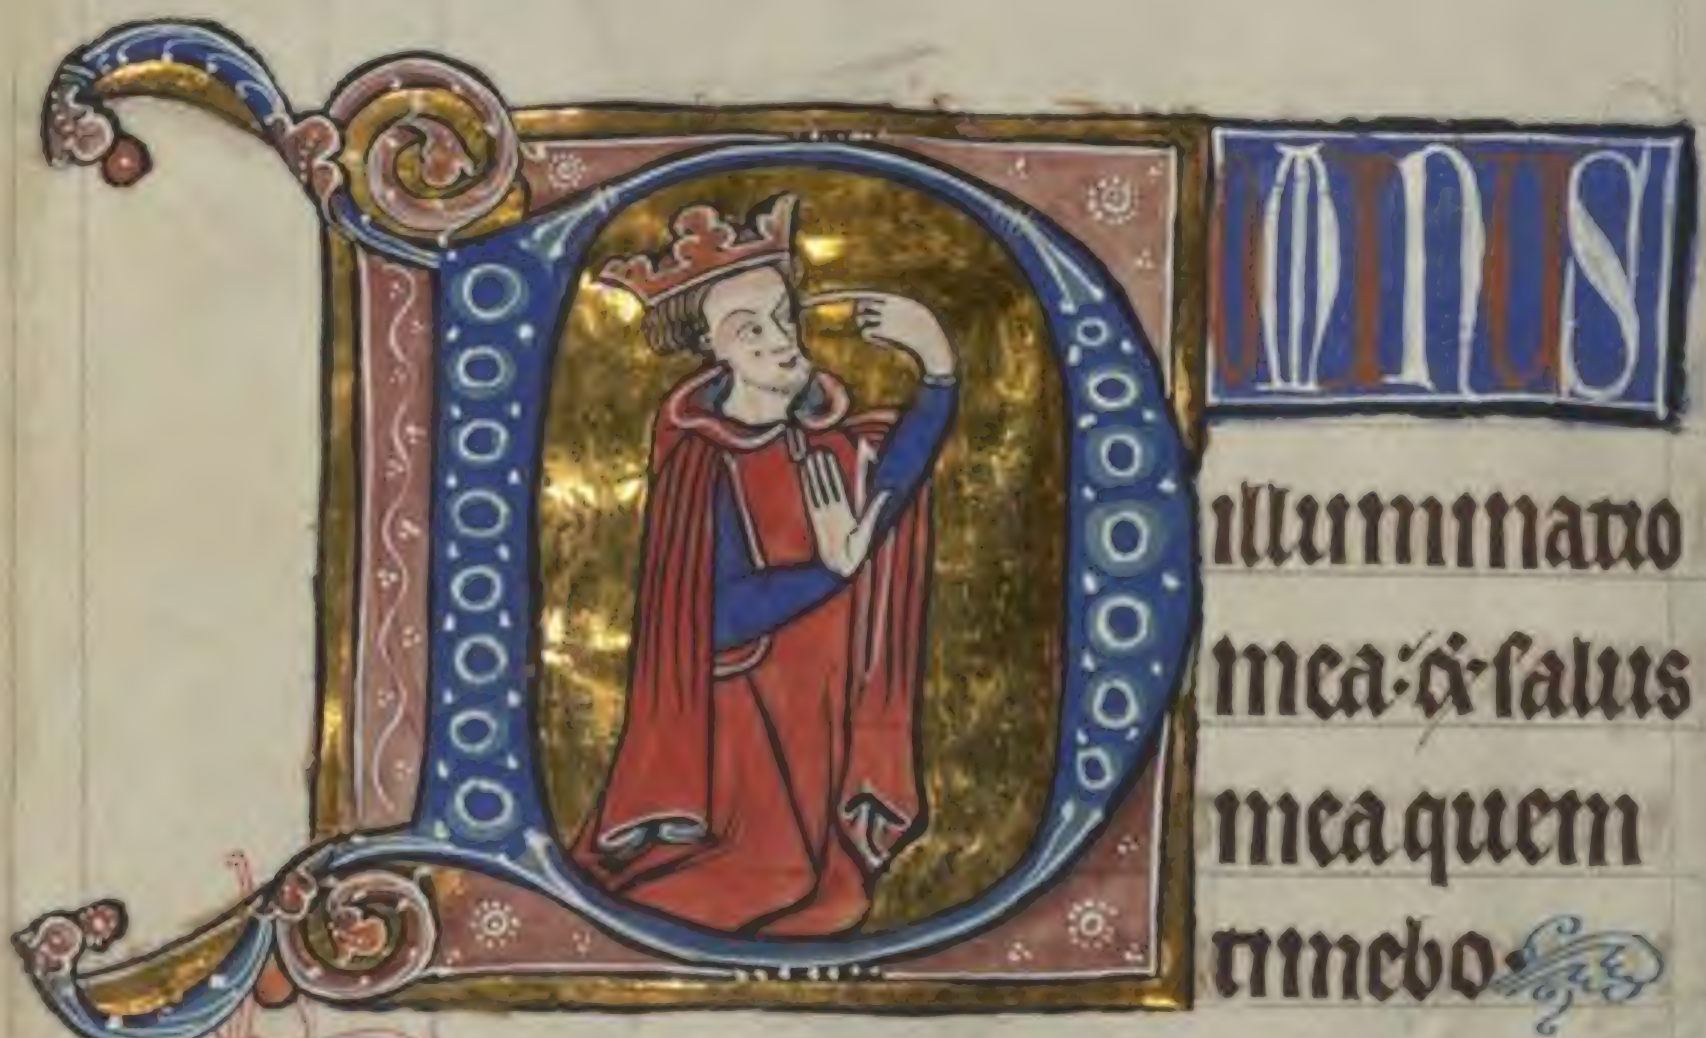 DOMINUS
illuminatio
mea: & ſalus
mea quem
timebo.